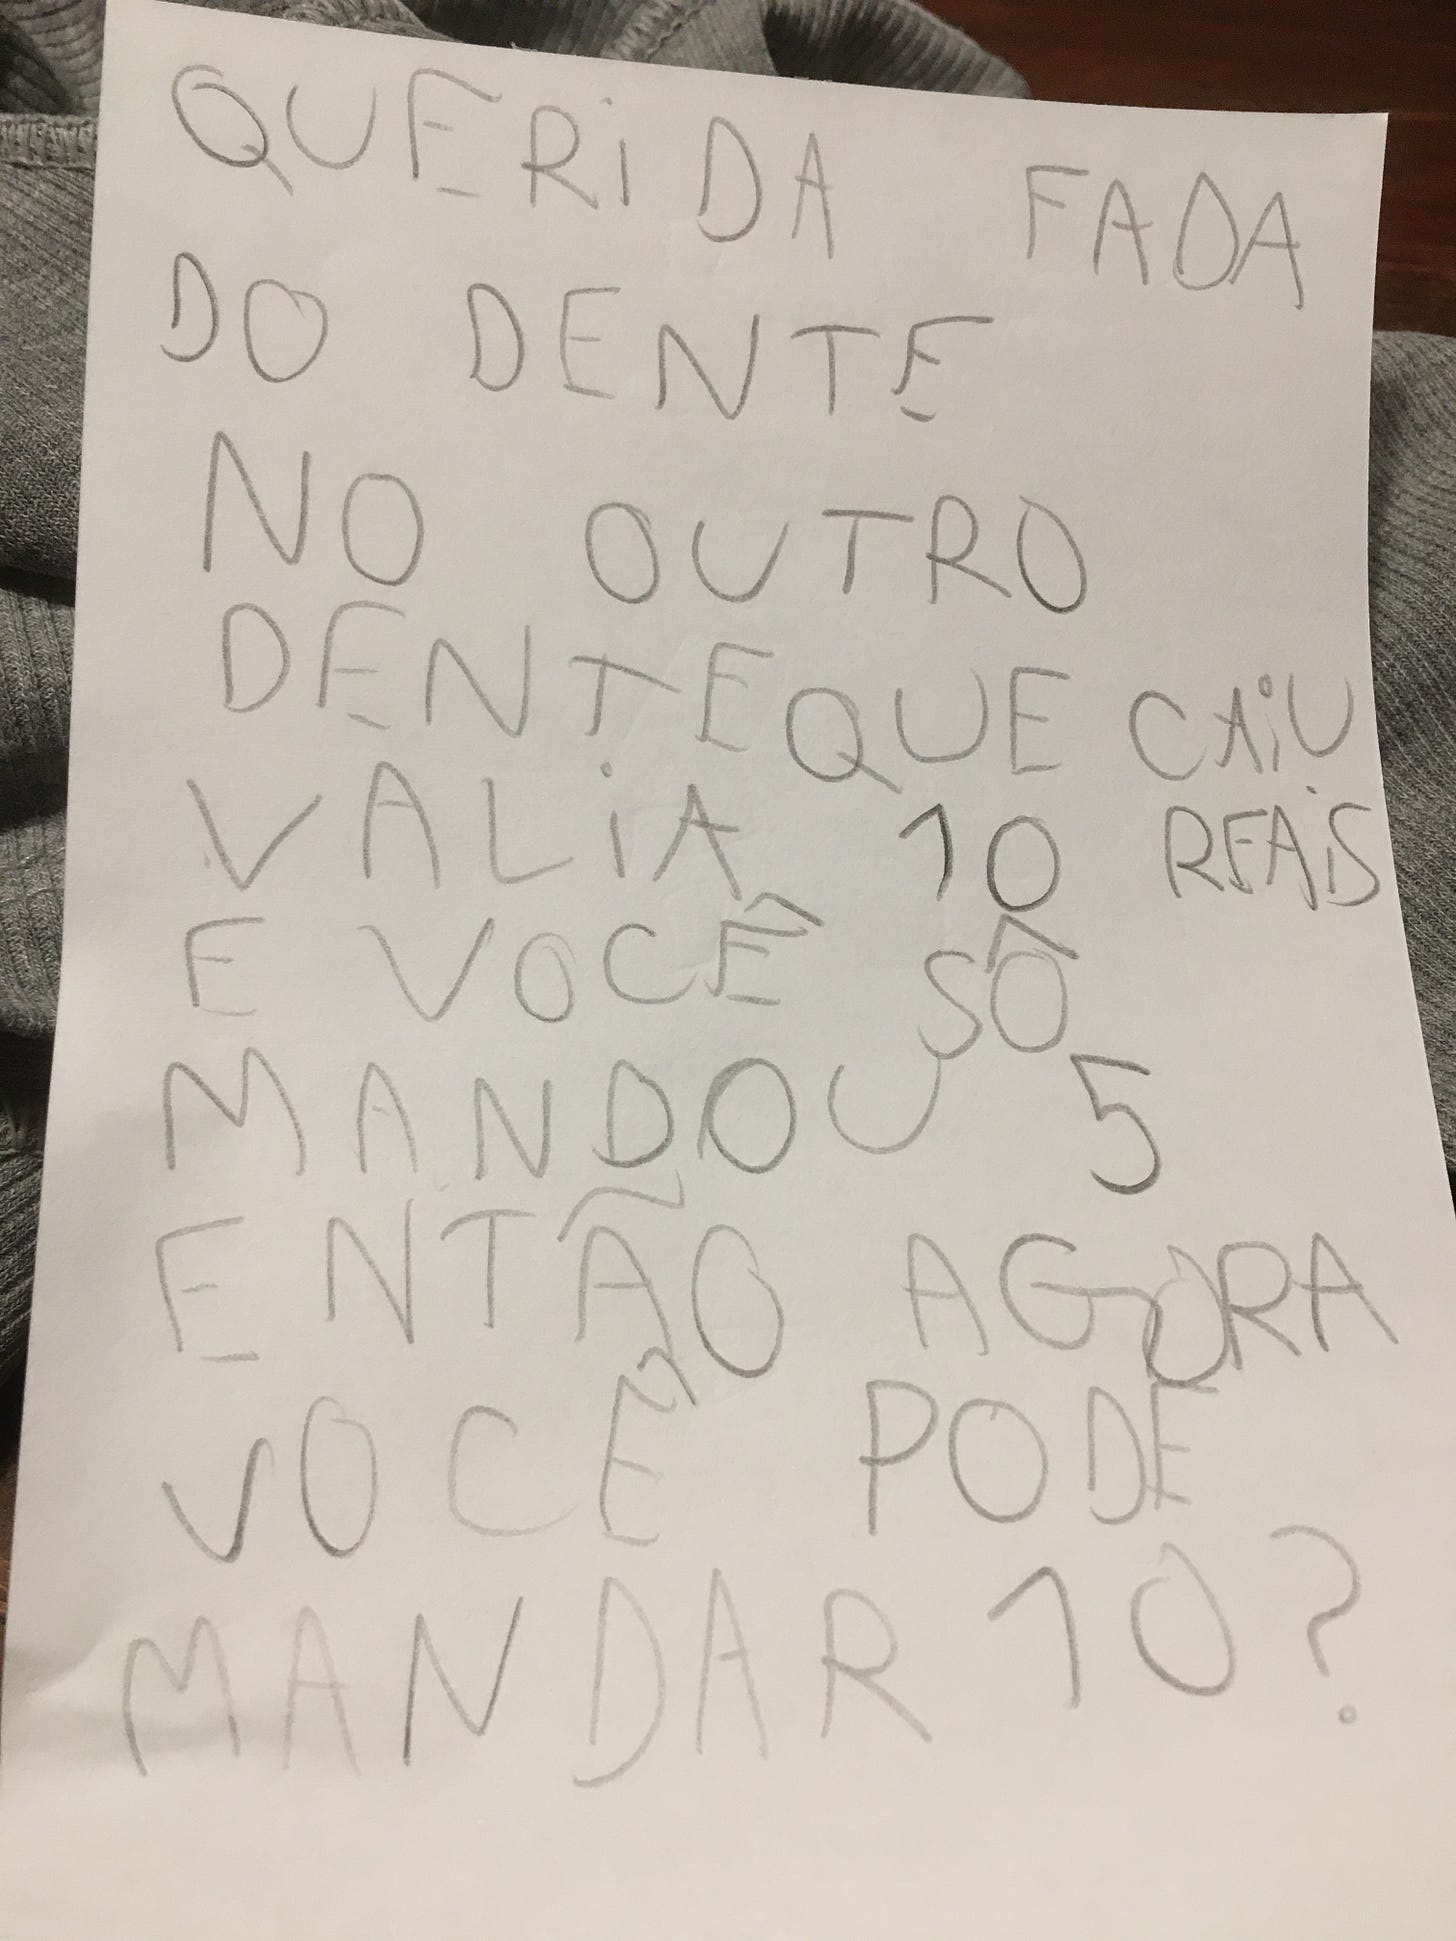 QUERiDA FADA
DO DENTE
NO OUTRO
DENTE QUE CAiU
VALiA 10 REAiS
E VOCÊ SÔ
MANDOU 5
ENTÃO AGORA
VOCÊ PODE
MANDAR 10?